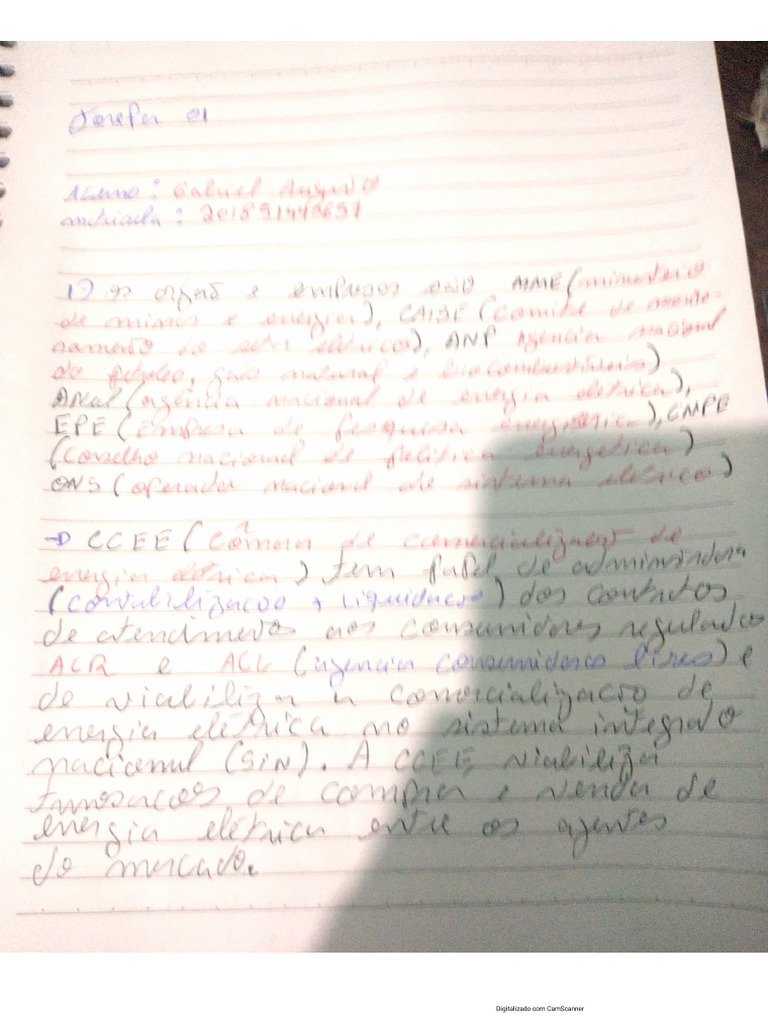 Tarefa 01
Aluno: Gabriel Augusto
matricula: 201891449697
1) os orgãos e empresas são MME (ministerio
de minas e energia), CMSE (comite de monito-
ramento do setor elétrico), ANP Agencia nacional
do petroleo, gás natural e biocombustiveis)
ANEEL (agência nacional de energia elétrica),
EPE (Empresa de pesquisa energética), CNPE
(Conselho nacional de politica energetica)
ONS (operador nacional de sistema elétrico)
→ CCEE (Câmara de comercialização de
energia eletrica) tem papel de administradora
(contabilização + liquidação) dos contratos
de atendimento aos consumidores regulados
ACR e ACL (agencia consumidores livres) e
de viabilizar a comercialização de
energia elétrica no sistema integrado
nacional (SIN). A CCEE viabiliza
transações de compra e venda de
energia elétrica entre os agentes
do mercado.
Digitalizado com CamScanner